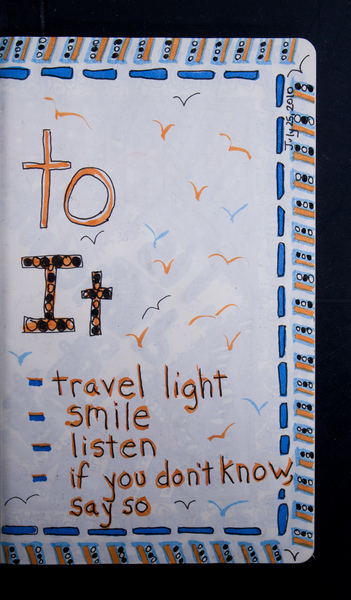 July 25, 2010
to
It
- travel light
- smile
- listen
- if you don't know,
say so